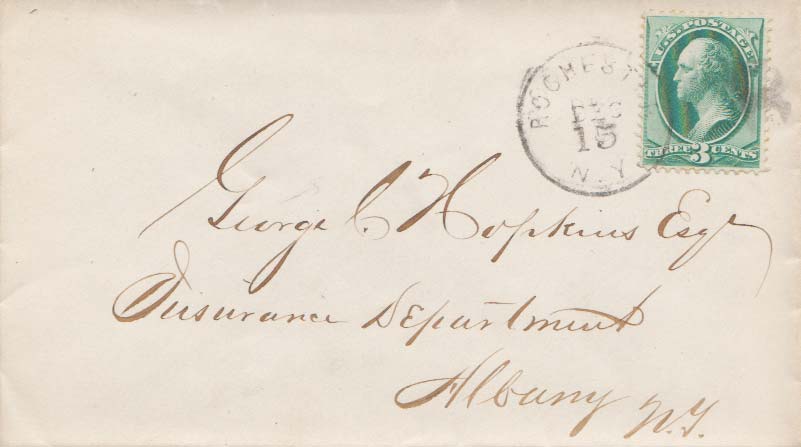 U.S. POSTAGE
THREE 3 CENTS
ROCHEST
DEC
15
N.Y
George C. Hopkins Esqr
Insurance Department
Albany N.Y.